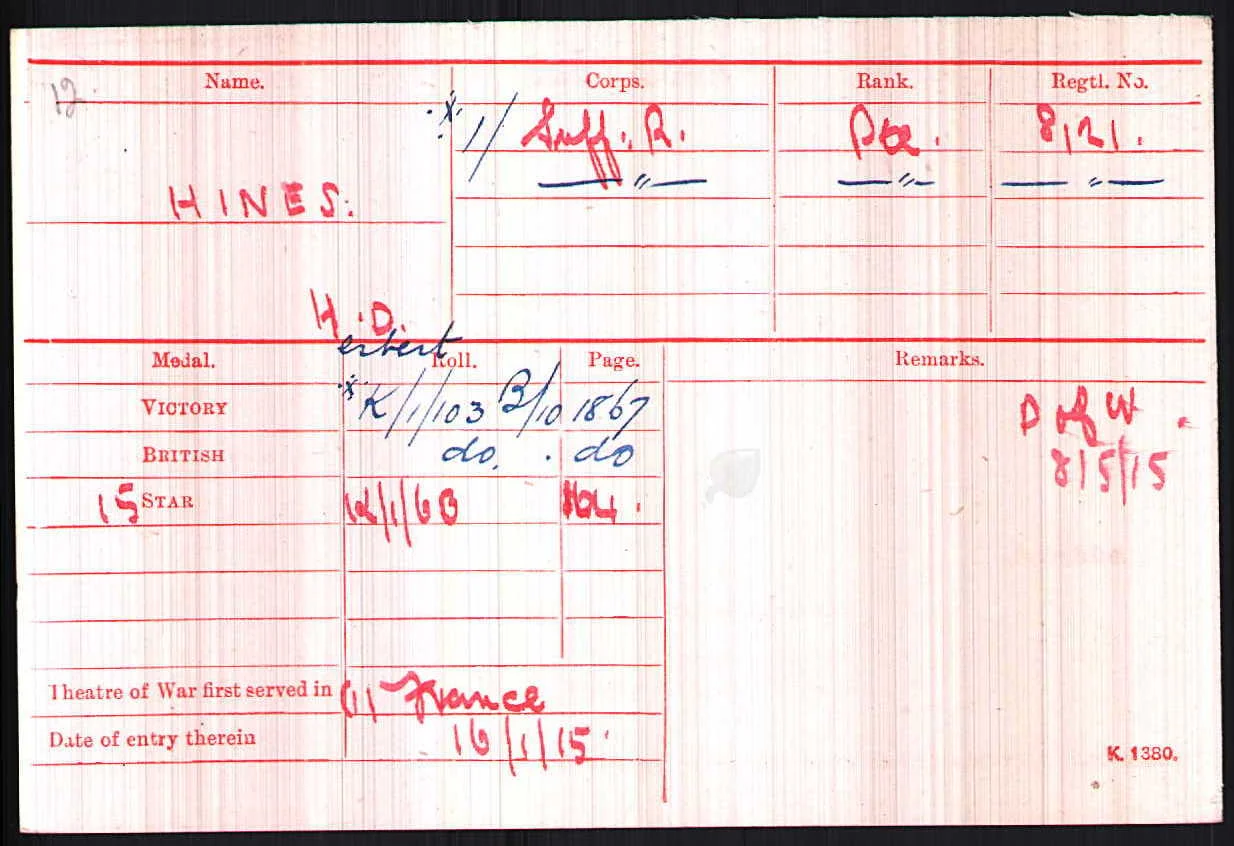 12
Name. Corps. Rank. Regtl. No.
*1/ Suff. R. Pte. 8121.
HINES. — " — — " — — " —
H.D.
erbert
Medal. Roll. Page. Remarks.
VICTORY *K/1/103 B/10 1867 D of W.
BRITISH do. . do 8/5/15
15 STAR
Theatre of War first served in (1) France
Date of entry therein 16/1/15.
K. 1380.